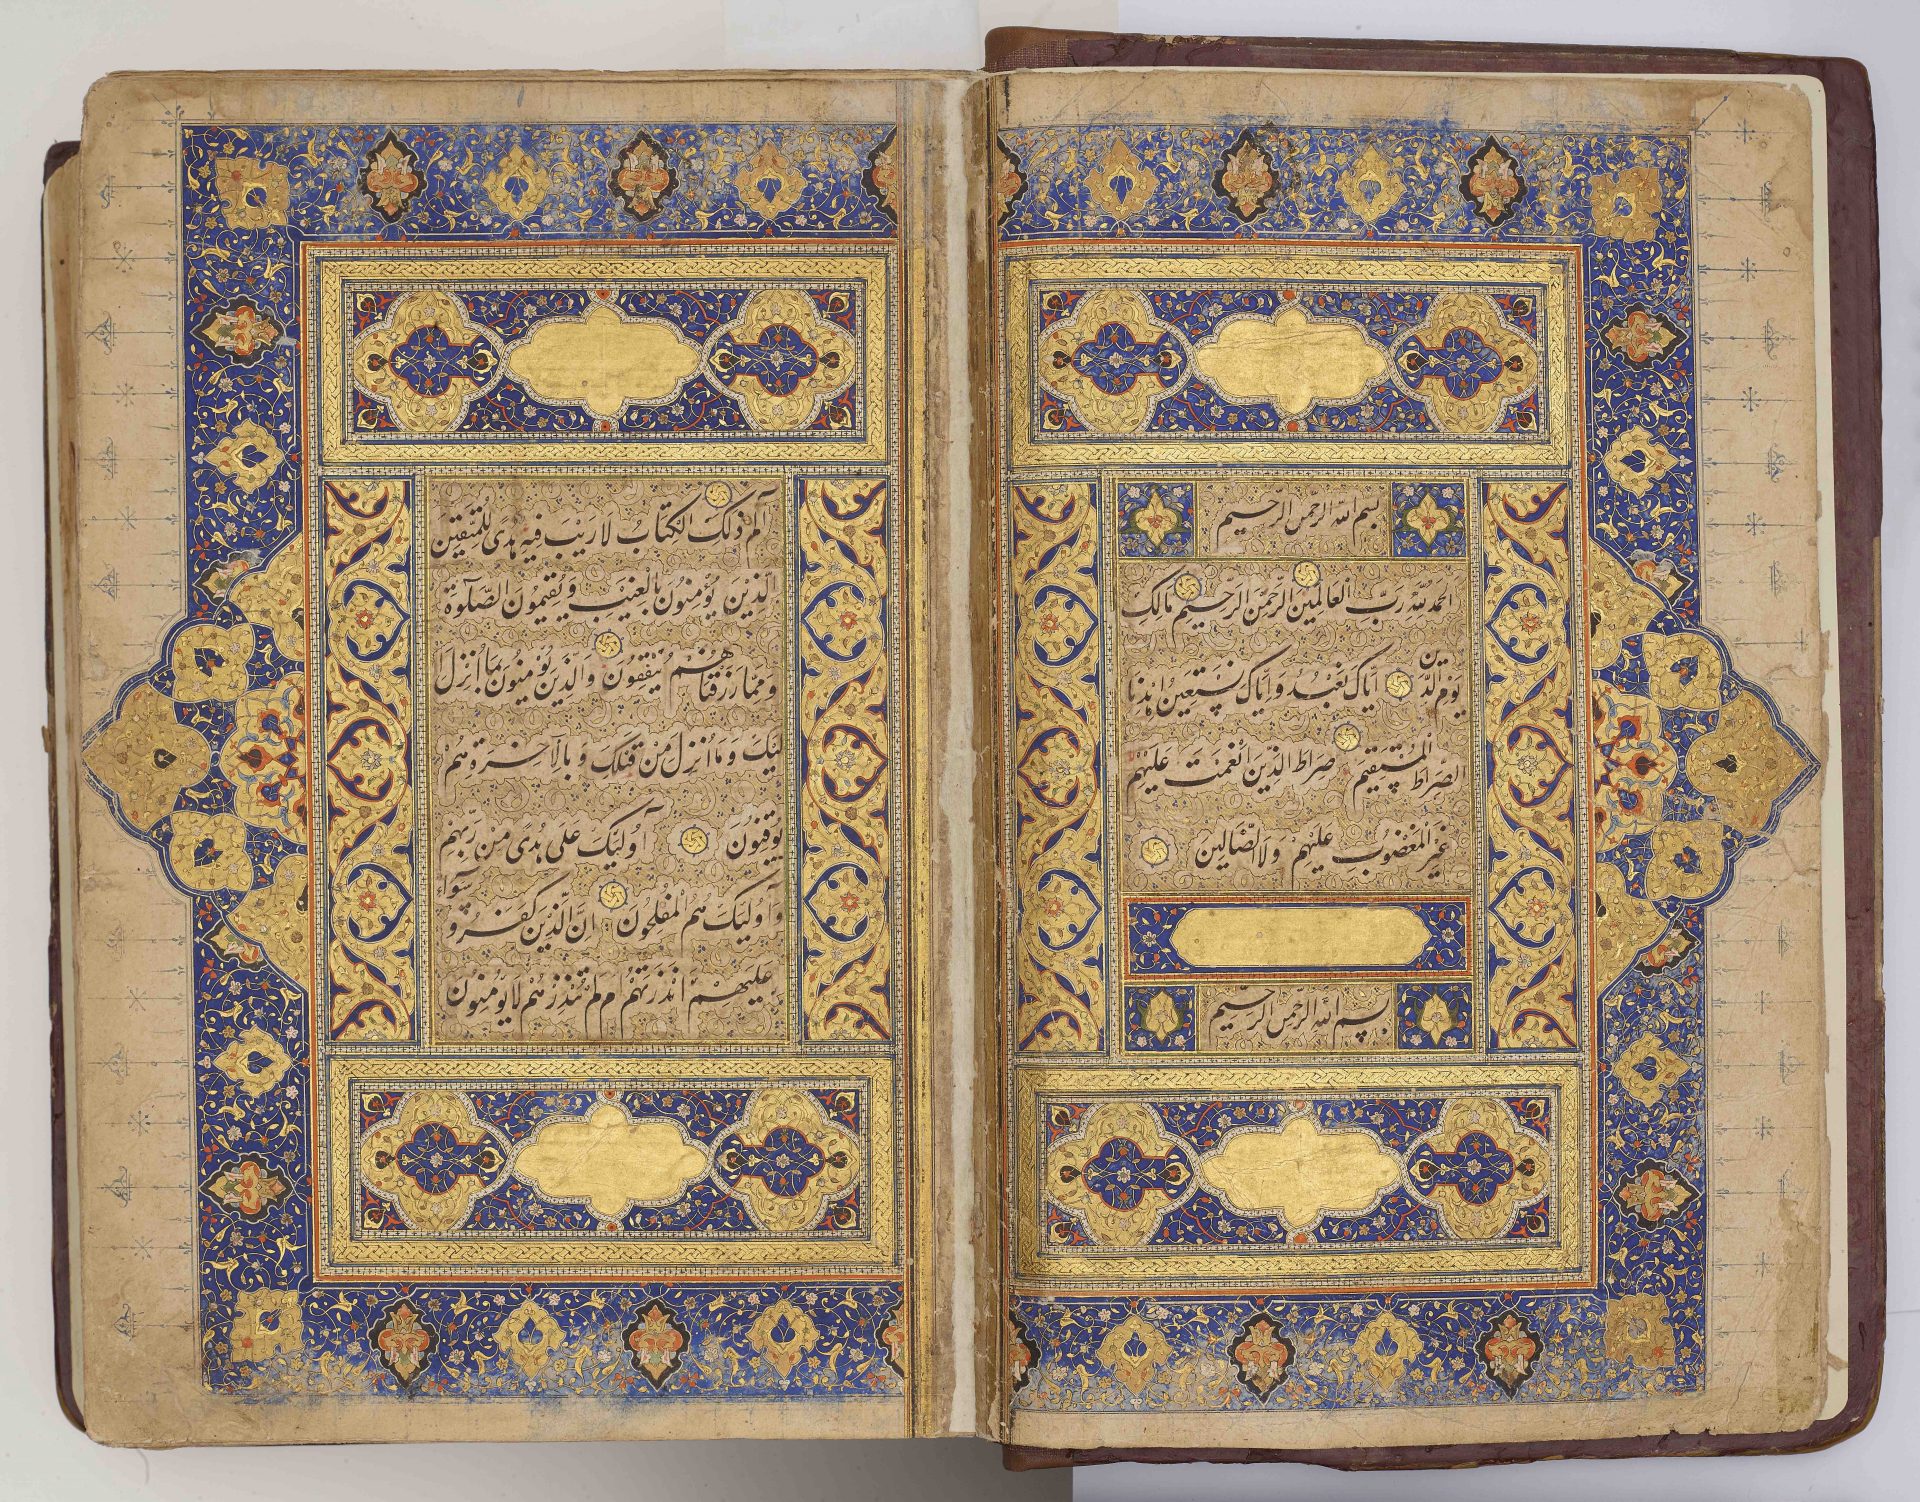 بسم الله الرحمن الرحیم
الحمد لله رب العالمین الرحمن الرحیم مالک
یوم الدین ایاک نعبد و ایاک نستعین اهدنا
الصراط المستقیم صراط الذین انعمت علیهم
غیر المغضوب علیهم ولا الضالین
بسم الله الرحمن الرحیم
آلم ذلک الکتاب لا ریب فیه هدی للمتقین
الذین یؤمنون بالغیب و یقیمون الصلوة
و مما رزقناهم ینفقون والذین یؤمنون بما انزل
الیک و ما انزل من قبلک و بالآخرة هم
یوقنون اولئک علی هدی من ربهم
و اولئک هم المفلحون ان الذین کفروا سواء
علیهم ءانذرتهم ام لم تنذرهم لا یؤمنون